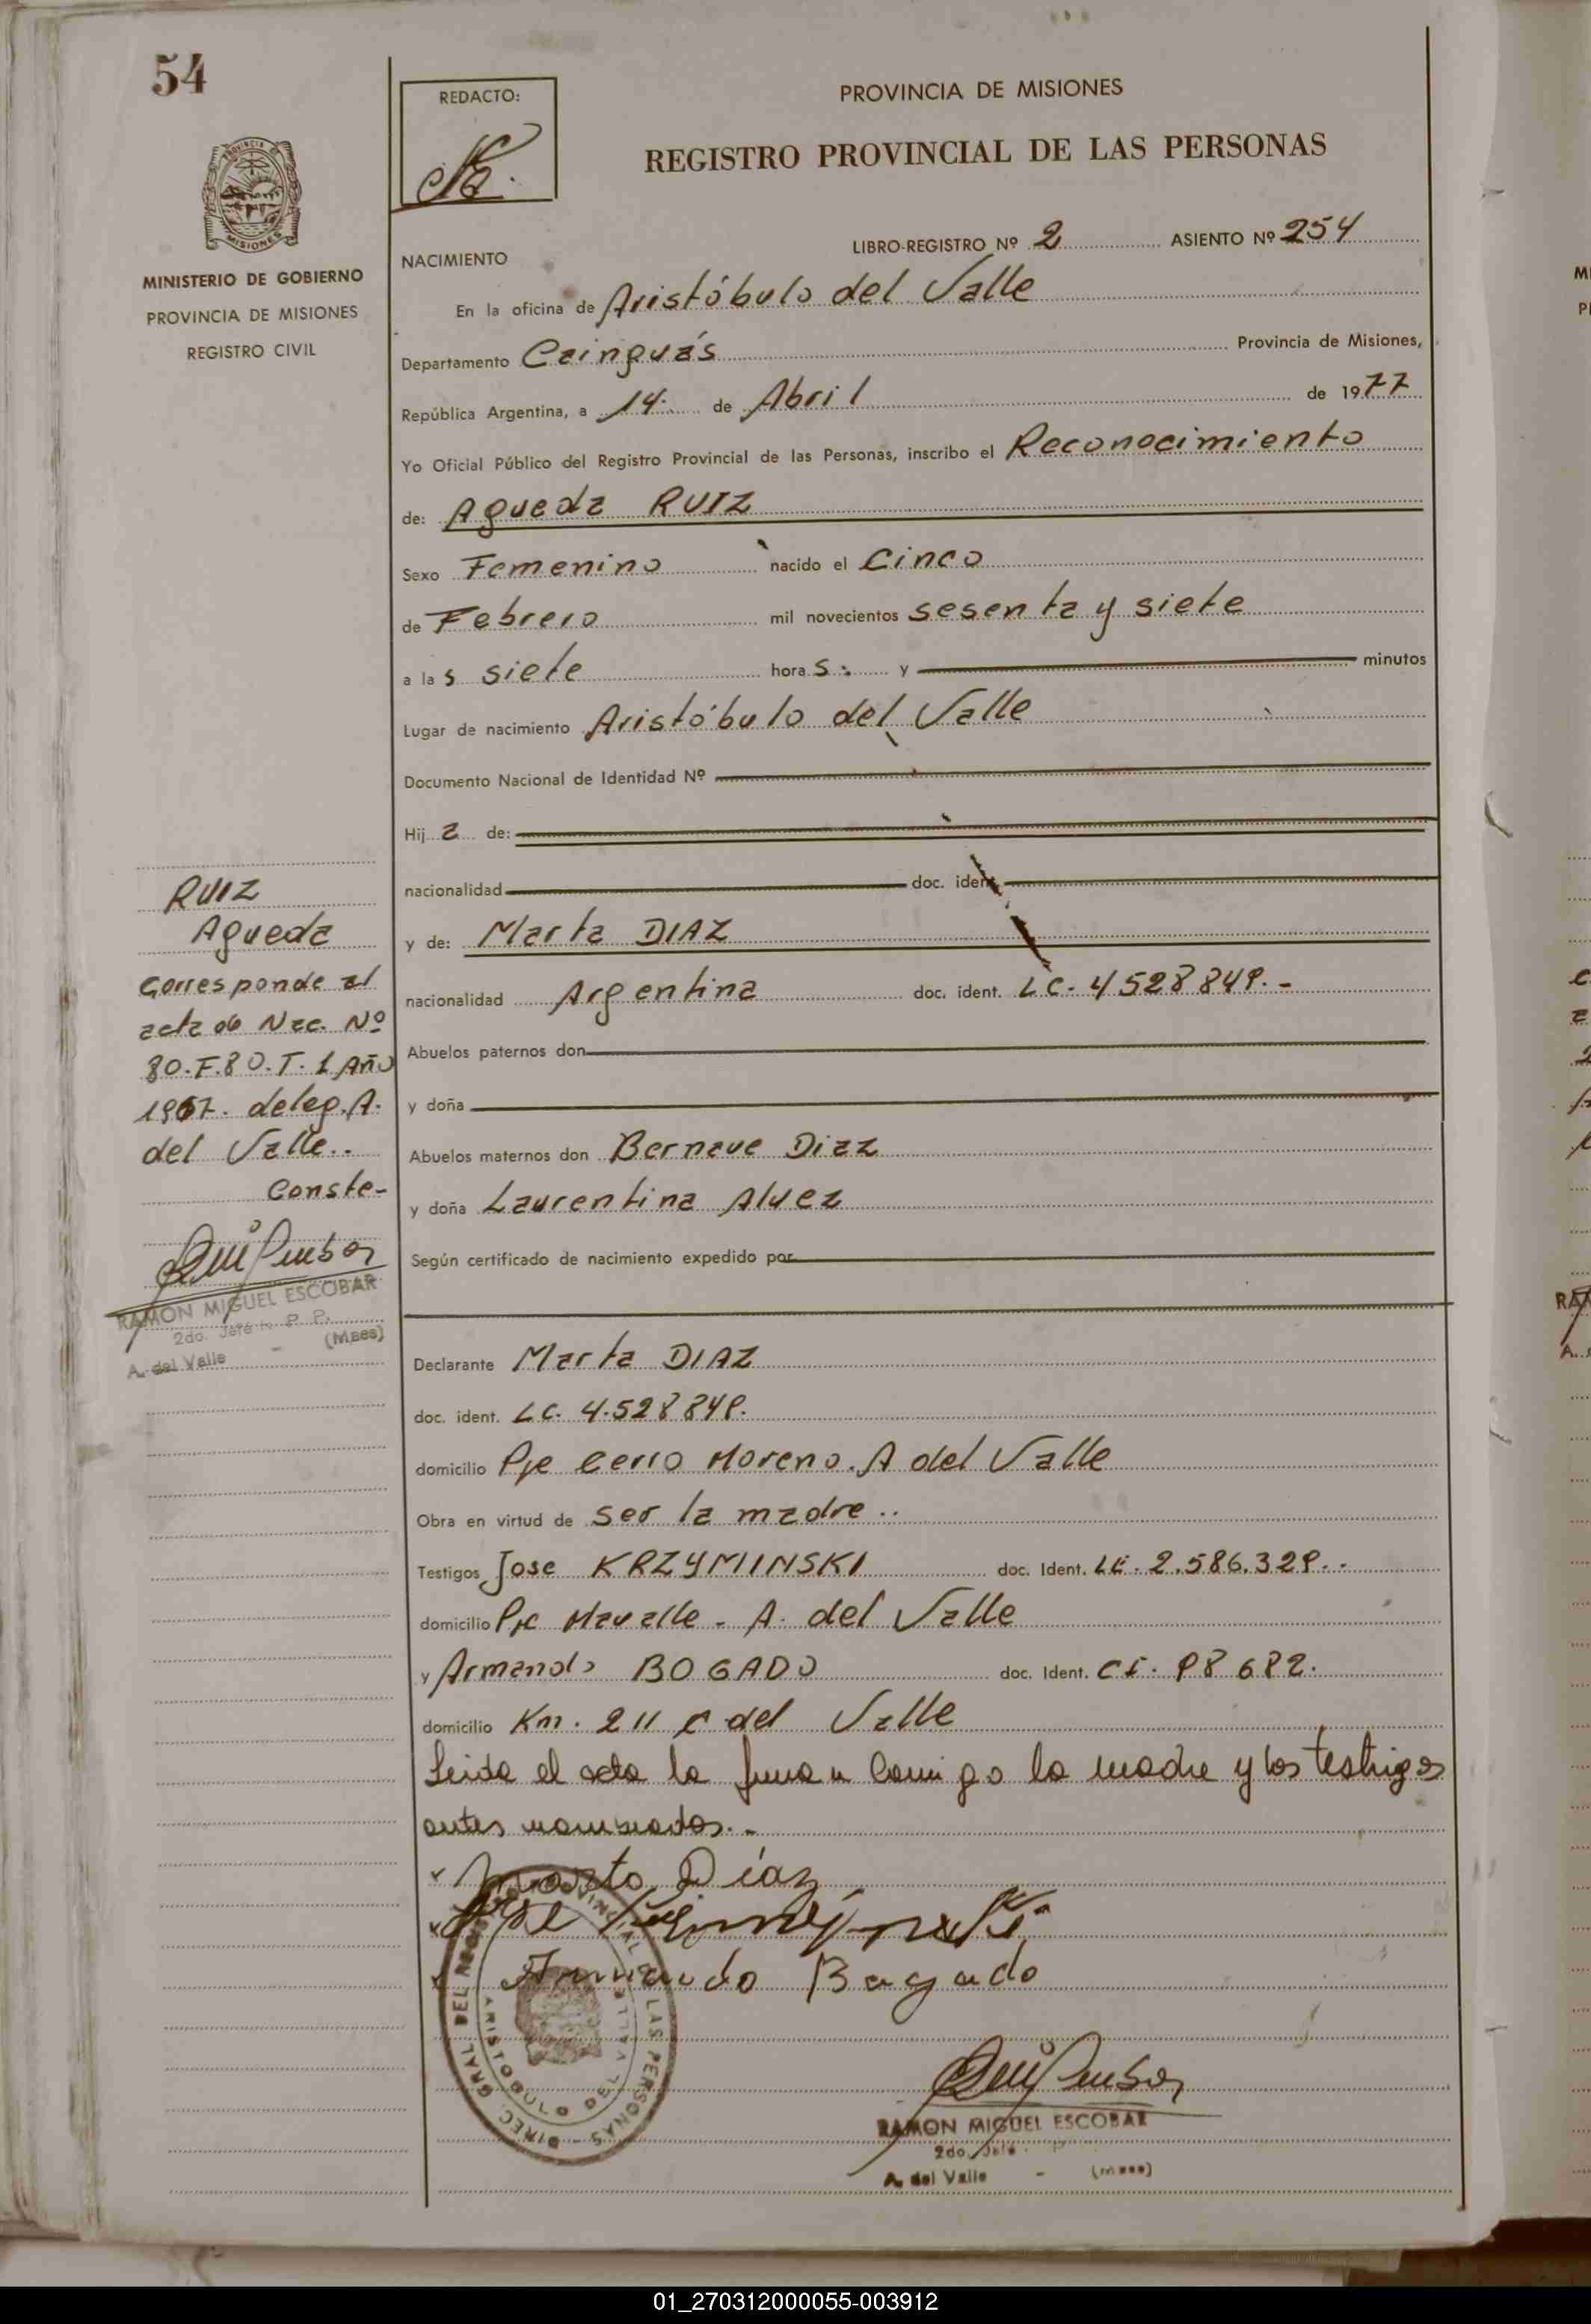 54
REDACTO:
PROVINCIA DE MISIONES
REGISTRO PROVINCIAL DE LAS PERSONAS
PROVINCIA DE
MISIONES
MINISTERIO DE GOBIERNO
PROVINCIA DE MISIONES
REGISTRO CIVIL
LIBRO-REGISTRO Nº 2 ASIENTO Nº 254
NACIMIENTO
En la oficina de Aristóbulo del Valle
Departamento Cainguás Provincia de Misiones,
República Argentina, a 14 de Abril de 1977
Yo Oficial Público del Registro Provincial de las Personas, inscribo el Reconocimiento
de: Agueda RUIZ
Sexo Femenino nacido el Cinco
de Febrero mil novecientos sesenta y siete
a las siete horas y minutos
Lugar de nacimiento Aristóbulo del Valle
Documento Nacional de Identidad Nº
Hija de:
nacionalidad doc. ident.
y de: Marta DIAZ
nacionalidad Argentina doc. ident. LC. 4528849.-
Abuelos paternos don
y doña
Abuelos maternos don Bernave Diaz
y doña Laurentina Alvez
Según certificado de nacimiento expedido por
RUIZ
Agueda
Corresponde al
acta de Nac. Nº
80.F.80.T.1 Año
1967. deleg. A.
del Valle..
Conste-
RAMON MIGUEL ESCOBAR
2do. Jefe
A. del Valle - (Mnes)
Declarante Marta DIAZ
doc. ident. LC. 4.528849.
domicilio Pje Cerro Moreno. A del Valle
Obra en virtud de ser la madre..
Testigos Jose KRZYMINSKI doc. Ident. LE. 2.586.329..
domicilio Pje Mavalle - A. del Valle
y Armando BOGADO doc. Ident. CI. 98682.
domicilio Km. 211 del Valle
Leida el acta la firman conmigo la madre y los testigos
antes nombrados.-
Marta Díaz
Armando Bogado
DIREC. GRAL. DEL REGISTRO PROVINCIAL DE LAS PERSONAS -
ARISTOBULO DEL VALLE
RAMON MIGUEL ESCOBAR
2do. Jefe
A. del Valle - (mnes)
01_270312000055-003912